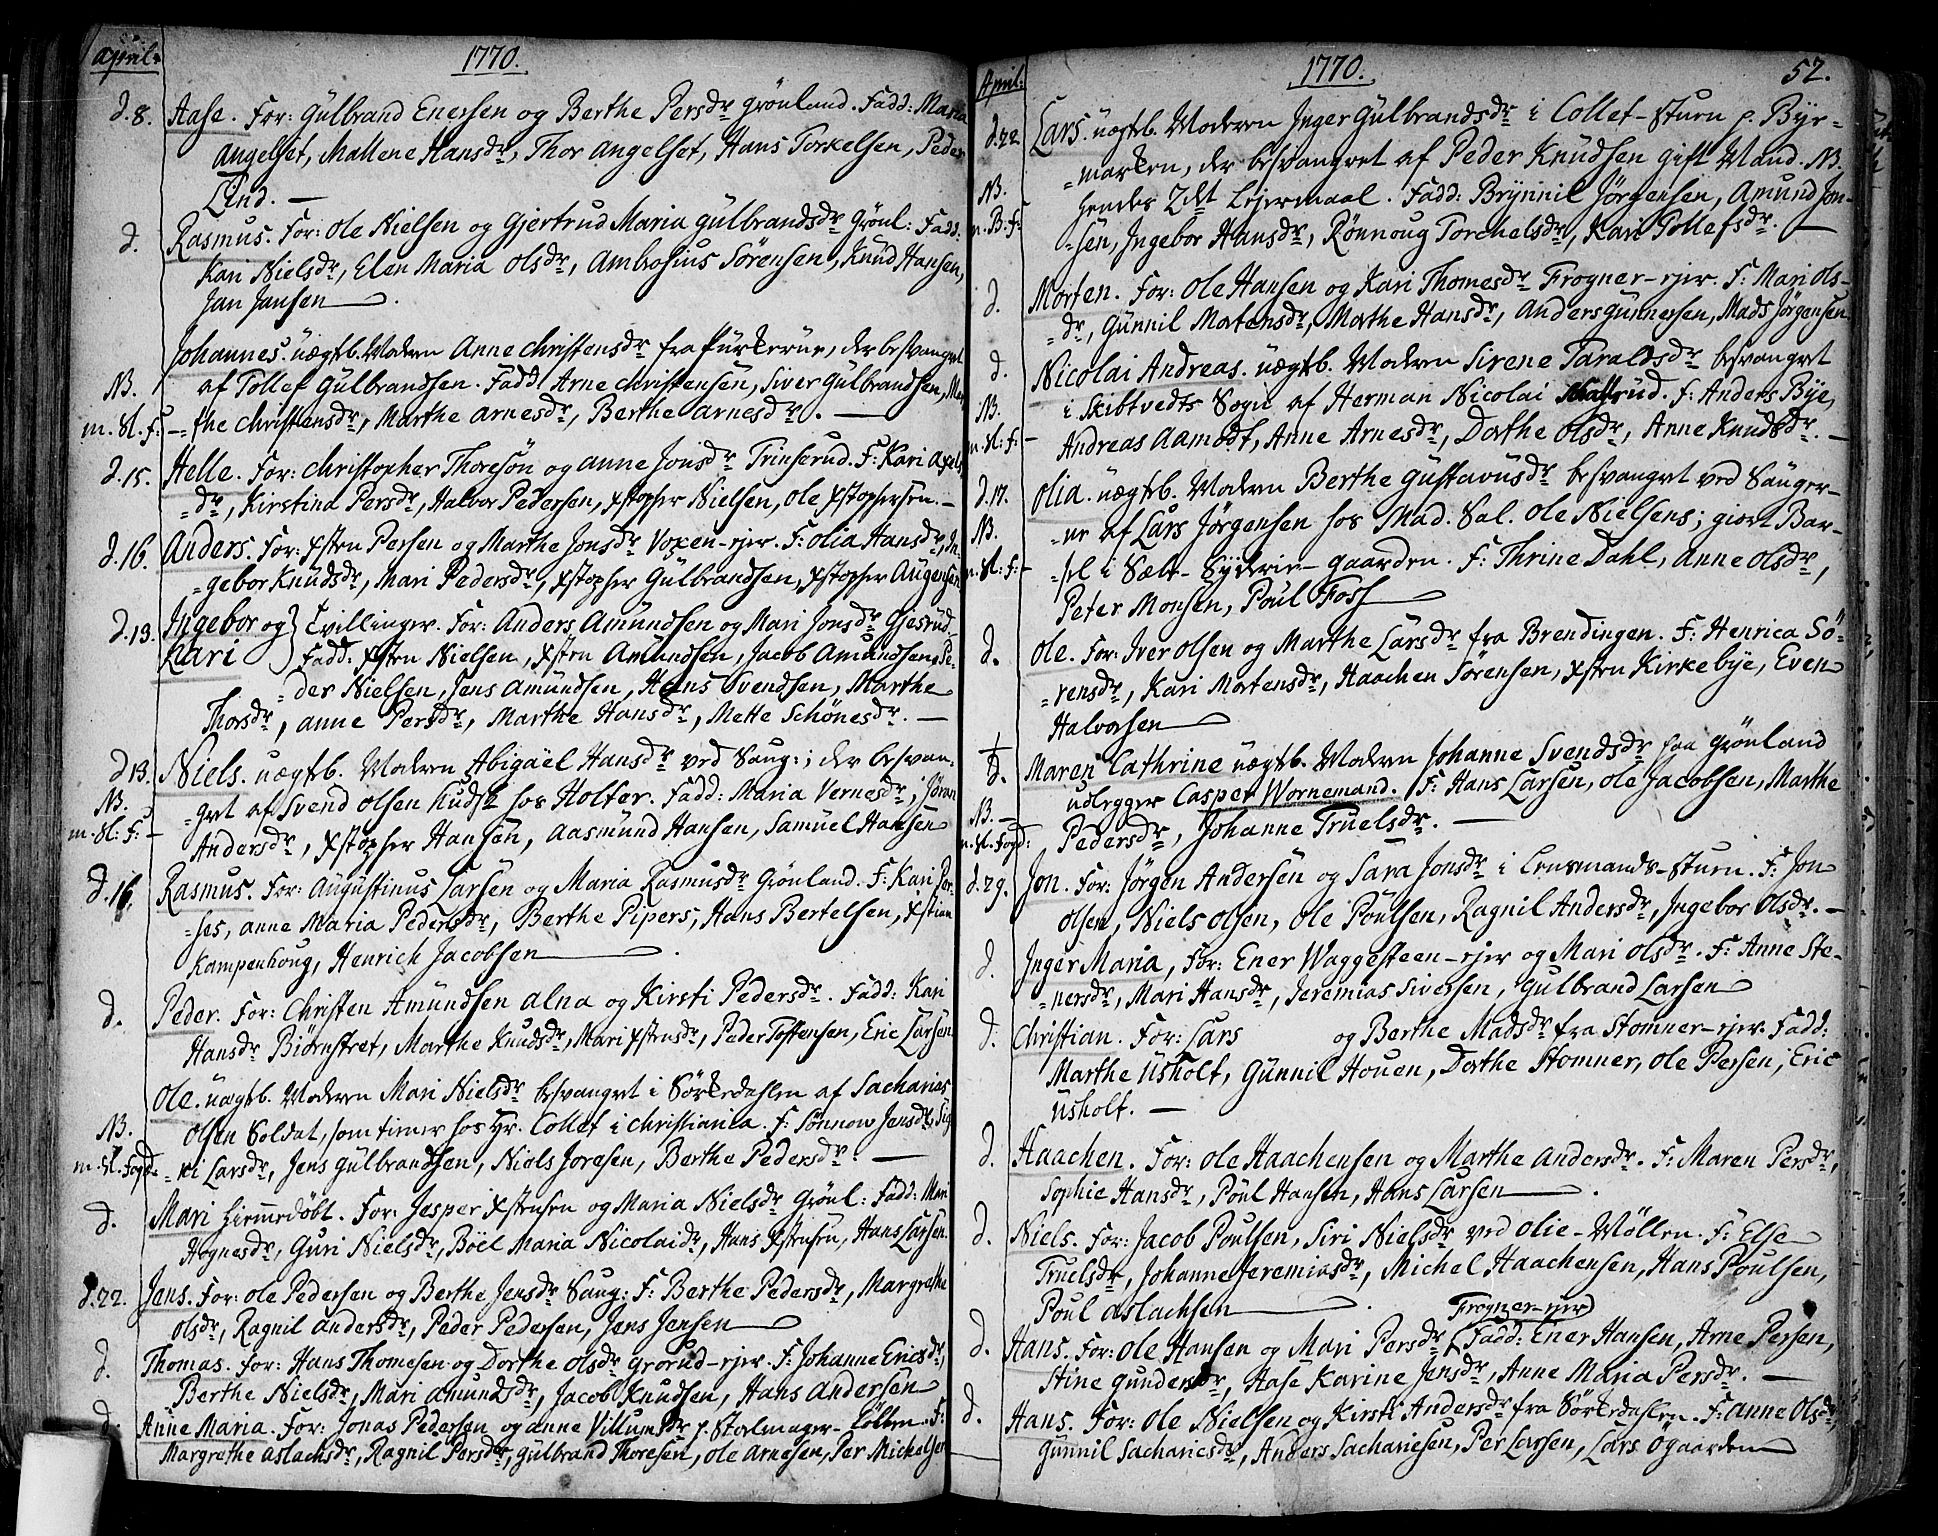 April.
1770.
d. 8. Aase. For: Gülbrand Enersen og Berthe Persdr Grönland. Fadd: Maria
Angelset, Mallene Hansdr, Thor Angelset, Hans Torkelsen, Peder
Lind. —
d. Rasmus. For: Ole Nielsen og Gjertrud Maria Gülbrandsdr Grönl: Fadd:
Kari Nielsdr, Elen Maria Olsdr, Ambrosius Sörensen, Knud Hansen,
Jan Jansen
Johannes. uægtb. Moderen Anne Christensdr fra, der besvangret
NB. af Tollef Gülbrandsen. Fadd: Arne Christensen, Siver Gülbrandsen, Mar-
m. Sl. F: -the Christensdr, Marthe Arnesdr, Berthe Arnesdr. —
d. 15. Helle. For: Christopher Thoresön og Anne Jonsdr Trinserud. F: Kari Axels
=dr, Kirstina Persdr, Halvor Pedersen, Xstopher Nielsen, Ole Xstophersen. —
d. 16. Anders. For: Xsten Persen og Marthe Jonsdr Voxen-ejer. F: Olia Hansdr, In-
=gebor Knüdsdr, Mari Pedersdr, Xstopher Gülbrandsen, Xstopher Augensen
d. 13. Ingebor og } Tvillinger. For: Anders Amündsen og Mari Jonsdr Gjesrüd.
Kari } Fadd: Xsten Nielsen, Xsten Amündsen, Jacob Amündsen, Pe-
=der Nielsen, Jens Amündsen, Hans Svendsen, Marthe
Thorsdr, Anne Persdr, Marthe Hansdr, Mette Schönesdr. —
d 13. Niels. uægtb. Moderen Abigael Hansdr ved Saug:; der besvan-
NB. =gret af Svend Olsen Kudsk hos Holter. Fadd: Maria Vernesdr, Jöran
m. Sl: F: - Andersdr, Xstopher Hansen, Aasmünd Hansen, Samüel Hansen
d. 16. Rasmus. For: Augustinus Larsen og Maria Rasmusdr Grönland. F: Kari Jor-
=ses, Anne Maria Pedersdr, Berthe Pipers, Hans Bertelsen, Xstian
Kampenhoug, Henrich Jacobsen
d. Peder. For: Christen Amündsen Alna og Kirsti Pedersdr. Fadd: Kari
Hansdr Biörnstret, Marthe Knüdsdr, Mari Xstensdr, Peder Tostensen, Eric Larsen
Ole. uægtb. Moderen Mari Nielsdr besvangret i Sörkedahlen af Sacharias
NB. Olsen Soldat, som tiener hos Hr. Collet i Christiania. F: Sönnow Jensdr, Sig
m. Sl. Fogd: =ri Larsdr, Jens Gülbrandsen, Niels Joresen, Berthe Pedersdr. —
d. Mari hiemmedöbt. For: Jesper Xstensen og Maria Nielsdr Grönl: Fadd: Mari
Hognesdr, Guri Nielsdr, Böel Maria Nicolaidr, Hans Xstensen, Hans Larsen.
d. 22. Jens. For: Ole Pedersen og Berthe Jensdr Saug: F: Berthe Pedersdr, Margrethe
Olsdr, Ragnil Andersdr, Peder Pedersen, Jens Jensen
d. Thomas. For: Hans Thomesen og Dorthe Olsdr Grorud-ejer. F: Johanne Ericsdr,
Berthe Nielsdr, Mari Amundsdr, Jacob Knudsen, Hans Andersen
d. Anne Maria. For: Jonas Pedersen og Anne Villumsdr p. Stoelmager-Lökken. F:
Margrethe Aslachsdr, Ragnil Persdr, Gülbrand Thoresen, Ole Arnesen, Per Michelsen
April:
1770.
52.
d. 22. Lars. uægtb. Moderen Inger Gülbrandsdr i Collet-Stuen p. Byr-
=marken, der besvangret af Peder Knüdsen gift Mand. NB.
NB. hendes 2det Lejermaal. Fadd: Brynnil Jörgensen, Amund Jon-
m. B. F: =sen, Ingebor Hansdr, Rönnoug Torchelsdr, Kari Tollefsdr. —
d. Morten. For: Ole Hansen og Kari Thomesdr Frogner-ejer. F: Mari Ols-
=dr, Günnil Mortensdr, Marthe Hansdr, Anders Gunnersen, Mads Jörgensen.
d. Nicolai Andreas. uægtb. Moderen Sirene Taraldsdr besvangret
NB. i Skibtvedts Sogn af Herman Nicolai. F: Anders Bye,
m. Sl: F: - Andreas Aamodt, Anne Arnesdr, Dorthe Olsdr, Anne Knüdsdr. —
d. 17. Olia. uægtb. Moderen Berthe Güstavüsdr besvangret ved Sauger-
NB. =ne af Lars Jörgensen hos Mad. Sal. Ole Nielsens; giort Bar-
m. Sl: F: - =sel i Sæbe-Syderie-gaarden. F: Thrine Dahl, Anne Olsdr,
Peter Monsen, Poul Foss
d. Ole. For: Iver Olsen og Marthe Larsdr fra Brendingen. F: Henrica Sö-
=rensdr, Kari Mortensdr, Haachen Sörensen, Xsten Kirkebye, Even
Halvorsen
d. Maren Cathrine uægtb. Moderen Johanne Svendsdr paa Grönland
NB. — udlegger Casper Wornemand. F: Hans Larsen, Ole Jacobsen, Marthe
m. Sl. Fogd: Pedersdr, Johanne Truelsdr. —
d. 29. Jon. For: Jörgen Andersen og Sara Jonsdr i Lensmands-Stuen. F: Jon
Olsen, Niels Olsen, Ole Poülsen, Ragnil Andersdr, Ingebor Olsdr. —
d. Inger Maria, For: Ener Waggesteen-ejer og Mari Olsdr. F: Anne Ste-
=nersdr, Mari Hansdr, Jeremias Siversen, Gülbrand Larsen
d. Christian. For: Lars og Berthe Madsdr fra Stomner-ejer Fadd:
Marthe Usholt, Günnil Houen, Dorthe Stomner, Ole Persen, Eric
Usholt. —
d. Haachen. For: Ole Haachensen og Marthe Andersdr. F: Maren Persdr,
Sophie Hansdr, Poül Hansen, Hans Larsen
d. Niels. For: Jacob Poülsen, Siri Nielsdr ved Olie-Möllen. F: Else
Truelsdr, Johanne Jeremiasdr, Michel Haachensen, Hans Poülsen,
Poul Aslachsen
Frogner-ejer
d. Hans. For: Ole Hansen og Mari Persdr Fadd: Ener Hansen, Arne Persen,
Stine Gundersdr, Aase Karine Jensdr, Anne Maria Persdr. —
d. Hans. For: Ole Nielsen og Kirsti Andersdr fra Sörkedahlen. F: Anne Olsdr,
Günnil Sachariesdr, Anders Sachariesen, Per Larsen, Lars Ogaarden